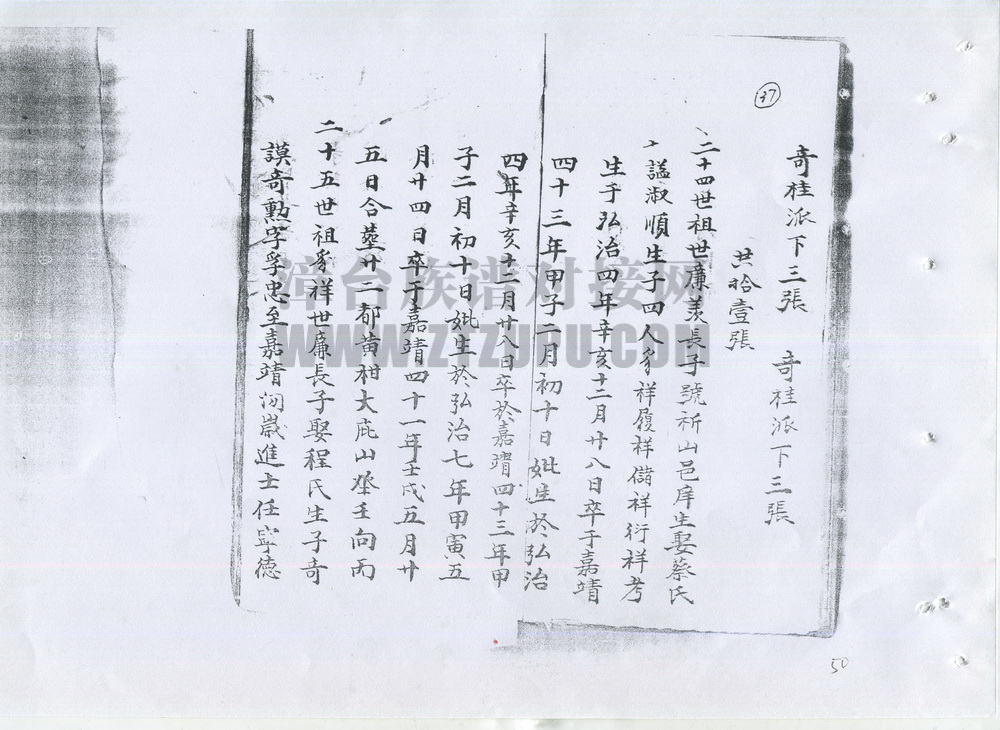 37
奇桂派下三張 奇桂派下三張
共拾壹張
二十四世祖世廉羡長子號祈山邑庠生娶蔡氏
謚淑順生子四人豸祥履祥儲祥衍祥考
生于弘治四年辛亥十二月廿八日卒于嘉靖
四十三年甲子二月初十日妣生於弘治
四年辛亥十二月廿八日卒於嘉靖四十三年甲
子二月初十日妣生於弘治七年甲寅五
月廿四日卒于嘉靖四十一年壬戌五月廿
五日合塟廿二都黄柑大庇山坐壬向丙
二十五世祖豸祥世廉長子娶程氏生子奇
謨奇勳字孚忠至嘉靖間歲進士任寧德
漳台族谱对接网
WWW.ZTZUPU.COM
50